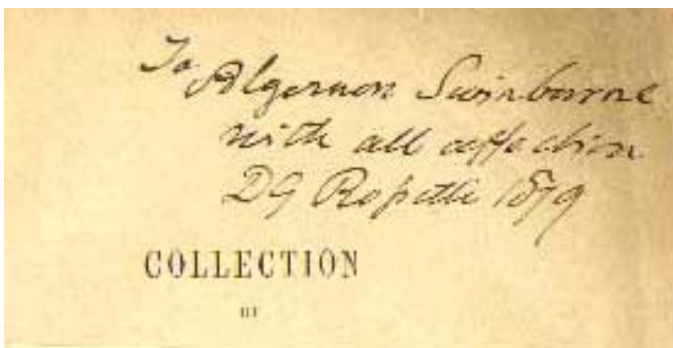 To
Algernon Swinburne
with all affection
DG Rossetti 1879
COLLECTION
OF